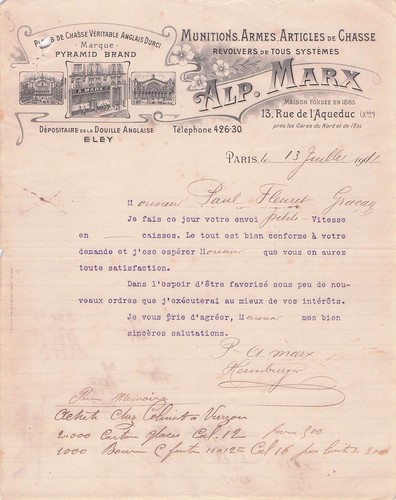 Plomb de Chasse Véritable Anglais Durci
Marque
PYRAMID BRAND
A. MARX
Dépositaire de la Douille Anglaise
ELEY
Munitions, Armes, Articles de Chasse
Revolvers de tous Systèmes
Alp. Marx
Maison Fondée en 1885
13, Rue de l'Aqueduc (Xème)
près les Gares du Nord et de l'Est
Téléphone 426-30
Paris, le 13 Juillet 1911
Monsieur Paul Fleuret Graçay
Je fais ce jour votre envoi petite-Vitesse
en caisses. Le tout est bien conforme à votre
demande et j'ose espérer Monsieur que vous en aurez
toute satisfaction.
Dans l'espoir d'être favorisé sous peu de nou-
veaux ordres que j'exécuterai au mieux de vos intérêts.
Je vous prie d'agréer, Monsieur mes bien
sincères salutations.
P. A. Marx
Heimburger
Pour mémoire
acheté chez Colinot à Vierzon
2.000 Carton glacés Cal. 12 pour 500
1000 Bourre Cal 16 par boite de 200